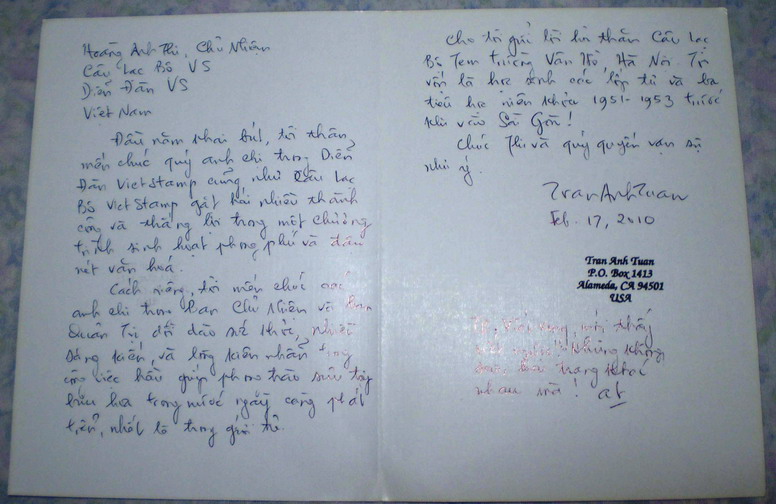 Hoàng Anh Thi, Chủ Nhiệm
Câu Lạc Bộ VS
Diễn Đàn VS
Việt Nam
Đầu năm khai bút, tôi thân
mến chúc quý anh chị trong Diễn
Đàn VietStamp cũng như Câu Lạc
Bộ VietStamp gặt hái nhiều thành
công và thắng lợi trong một chương
trình sinh hoạt phong phú và đậm
nét văn hoá.
Cách riêng, tôi mến chúc các
anh chị trong Ban Chủ Nhiệm và Ban
Quản Trị dồi dào sức khoẻ, nhiều
sáng kiến, và lòng kiên nhẫn trong
công việc hầu giúp phong trào sưu tập
bưu hoa trong nước ngày càng phát
triển, nhất là trong giới trẻ.
Cho tôi gửi lời hỏi thăm Câu Lạc
Bộ Tem trường Văn Hà Nội. Tôi
vốn là học sinh các lớp tư và ba
tiểu học niên khóa 1951-1953 trước
khi vào Sài Gòn!
Chúc Thi và quý quyến vạn sự
như ý.
TranAnhTuan
Feb. 17, 2010
Tran Anh Tuan
P.O. Box 1413
Alameda, CA 94501
USA
mới thấy
ngược! Nhưng không
trang khác
nhau mà! at